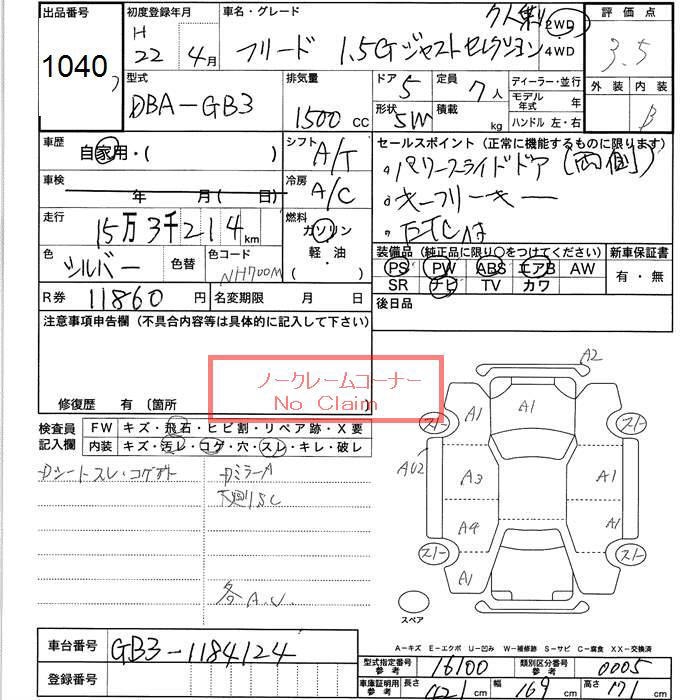 出品番号
1040
初度登録年月
H
22年 4月
車名・グレード
フリード 1.5G ジャストセレクション
2WD
4WD
評価点
3.5
外装 内装
B
型式
DBA-GB3
排気量
1500 cc
ドア 5
定員 7人
形状 5W
積載 kg
ディーラー・並行
モデル年式 年
ハンドル 左・右
車歴
自家用・( )
シフト
A/T
車検
年 月( 日)
冷房
A/C
走行
15万3千214km
燃料
ガソリン
軽・油
( )
色
シルバー
色替
色コード
NH700M
R券 11860円
名変期限 月 日
セールスポイント(正常に機能するものに限ります)
パワースライドドア(両側)
キーフリーキー
装備品(純正品に限り○をつけてください)
PS PW ABS エアB AW
SR ナビ TV カワ
新車保証書
有・無
後日品
注意事項申告欄(不具合内容等は具体的に記入して下さい)
ノークレームコーナー
No Claim
修復歴 有 〔箇所
検査員
記入欄
FW キズ・飛石・ヒビ割・リペア跡・X要
内装 キズ・汚レ・コゲ・穴・スレ・キレ・破レ
Dシートスレ・コゲ
DミラーA
各A.U.
A2
A1
A1
スト
スト
AU2
A3
A1
A4
A1
スト
スト
A1
スペア
A-キズ E-エクボ U-凹み W-補修跡 S-サビ C-腐食 XX-交換済
車台番号
GB3-1184124
登録番号
型式指定番号
参考
16100
類別区分番号
参考
0005
車庫証明用
参考
長さ 421cm 幅 169cm 高さ 171cm